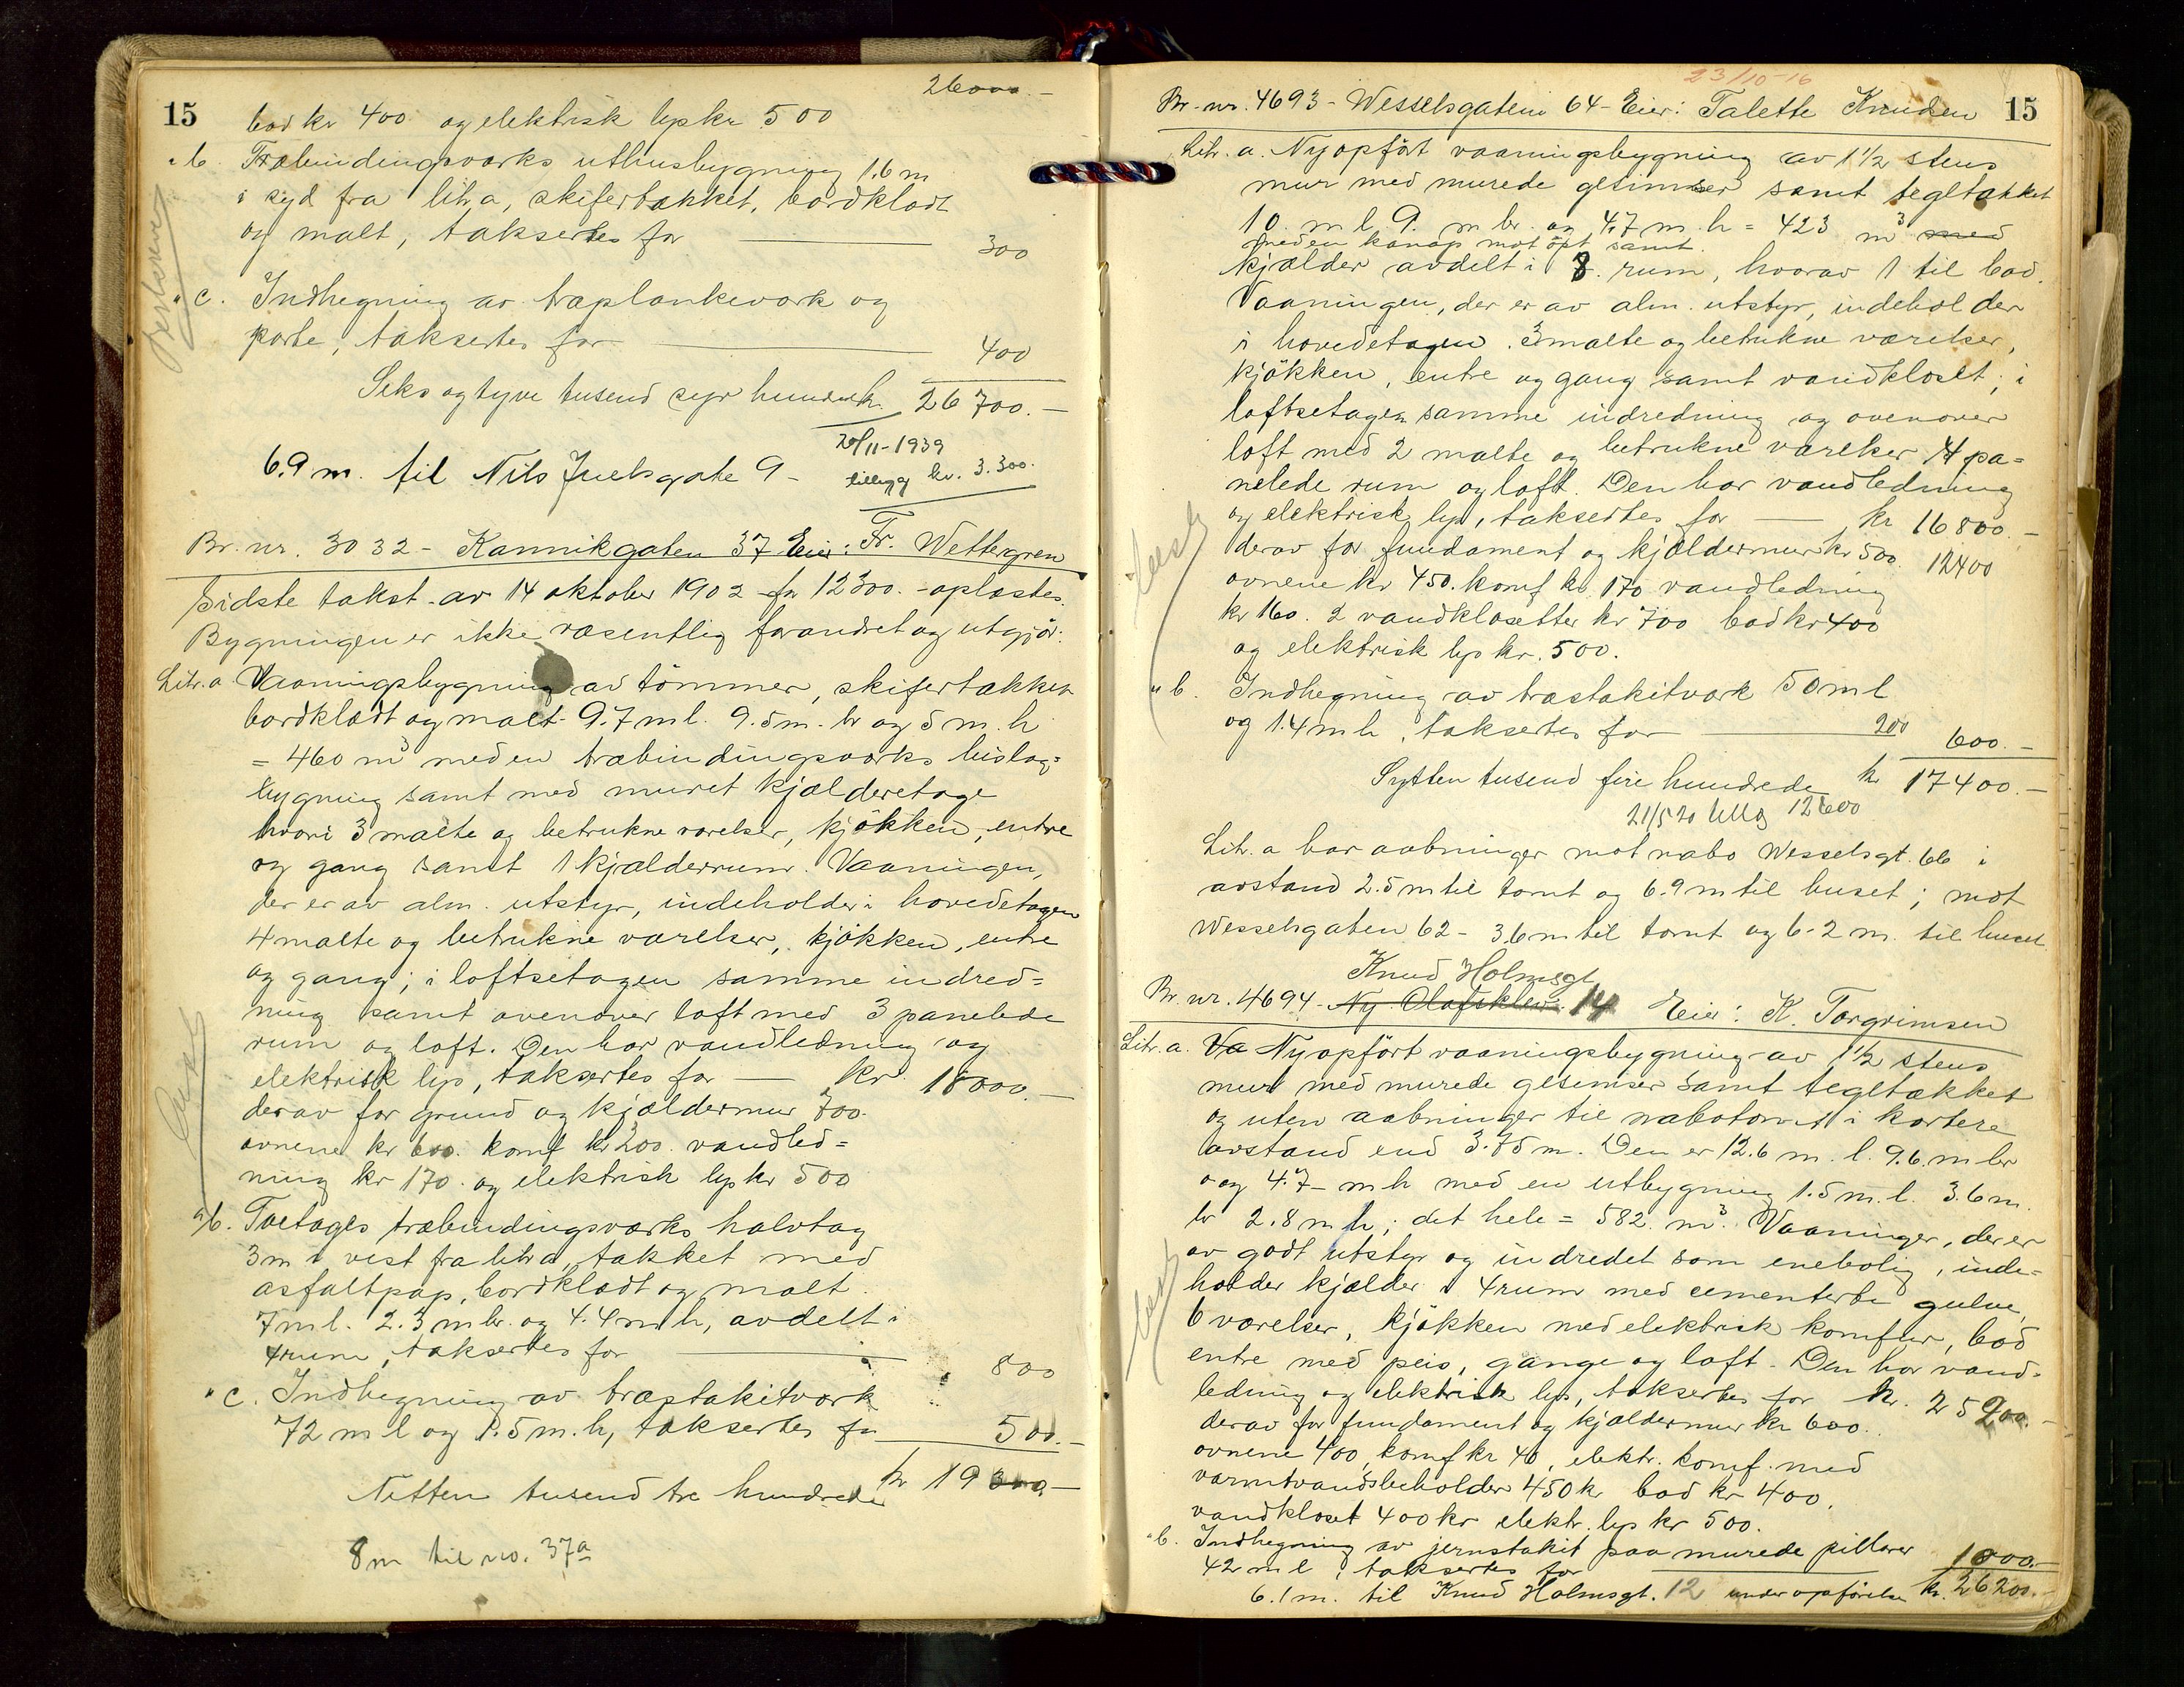 26000.-
15
bad kr 400 og elektrisk lys kr 500
" b. Træbindingsværks uthusbygning 1.6 m
i syd fra litr a, skifertækket, bordklædt
og malt, taksertes for 300
" c. Indhegning av træplankeverk og
porte, taksertes for 400
Seks og tyve tusend syv hundrede kr. 26700.-
6.9 m. til Nils Juelsgate 9 -
20/11-1939
tillegg kr. 3.300.
Br. nr. 3032 - Kannikgaten 37 Eier: Fr. Wettergren
Sidste takst av 14 oktober 1902 for 12300.- oplæstes.
Bygningen er ikke væsentlig forandret og utgjør:
Litr. a Vaaningsbygning av tømmer, skifertækket
bordklædt og malt - 9.7 m l. 9.5 m. br og 5 m. h
= 460 m3 med en træbindingsværks bislag=
bygning samt med muret kjælderetage
hvori 3 malte og betrukne værelser, kjøkken, entre
og gang samt 1 kjælderrum. Vaaningen,
der er av alm. utstyr, indeholder i hovedetagen
4 malte og betrukne værelser, kjøkken, entre
og gang; i loftsetagen samme indred=
ning samt ovenover loft med 3 panelede
rum og loft. Den har vandledning og
elektrisk lys, taksertes for kr. 18000.-
derav for grund og kjældermur 700.
ovnene kr 600. komf kr 200. vandled=
ning kr 170. og elektrisk lys kr 500
" b. Toetages træbindingsværks halvtag
3 m i vest fra litr a, tækket med
asfaltpap, bordklædt og malt.
7 m l. 2.3 m br. og 4.4 m h, avdelt i
4 rum, taksertes for 800
" c. Indhegning av træstakitværk
72 m l og 1.5 m. h, taksertes for 500.-
Nitten tusend tre hundrede kr 19300.-
8 m til no. 37a
23/10-16
15
Br. nr. 4693 - Wesselsgaten 64 - Eier: Talette Knudsen
Litr. a. Nyopført vaaningsbygning av 1 1/2 stens
mur med murede gesimser samt tegltækket
10. m l 9. m br. og 4.7 m. h = 423 m3 med
med en kanap mot øst samt
kjælder avdelt i 8. rum, hvorav 1 til bad.
Vaaningen, der er av alm. utstyr, indeholder
i hovedetagen 3 malte og betrukne værelser,
kjøkken, entre og gang samt vandkloset; i
loftsetagen samme indredning og ovenover
loft med 2 malte og betrukne værelser 4 pa=
nelede rum og loft. Den har vandledning
og elektrisk lys, taksertes for kr 16800.-
derav for fundament og kjældermur kr 500. 12400
ovnene kr 450. komf kr. 170 vandledning
kr 160. 2 vandklosetter kr 700 bad kr 400
og elektrisk lys kr. 500.
" b. Indhegning av træstakitværk 50 m l
og 1.4 m h, taksertes for 200 600.-
Sytten tusend fire hundrede kr 17400.-
21/5 20 tillæg 12600
Litr. a har aabninger mot nabo Wesselsgt. 66 i
avstand 2.5 m til tomt og 6.9 m til huset; mot
Wesselsgaten 62 - 3.6 m til tomt og 6.2 m. til huset.
Knud Holmsgt
Br. nr. 4694 - Ny Olafsklev. 14 Eier: K. Torgrimsen
Litr. a. Va Nyopført vaaningsbygning av 1 1/2 stens
mur med murede gesimser samt tegltækket
og uten aabninger til nabotomt i kortere
avstand end 3.75 m. Den er 12.6 m. l. 9.6. m br
og 4.7 - m h med en utbygning 1.5 m. l. 3.6 m.
br 2.8 m h; det hele = 582. m3. Vaaningen, der er
av godt utstyr og indredet som enebolig, inde=
holder kjælder i 4 rum med cementerte gulve,
6 værelser, kjøkken med elektrisk komfur, bad
entre med peis, gange og loft. Den har vand=
ledning og elektrisk lys, taksertes for kr. 25200.-
derav for fundament og kjældermur kr 600.
ovnene 400, komf kr 40, elektr. komf. med
varmtvandsbeholder 450 kr bad kr 400.
vandkloset 400 kr elektr. lys kr 500.
" b. Indhegning av jernstakit paa murede pillarer
42 m l, taksertes for 1000.-
6.1 m. til Knud Holmsgt. 12 under opførelse kr. 26200.-